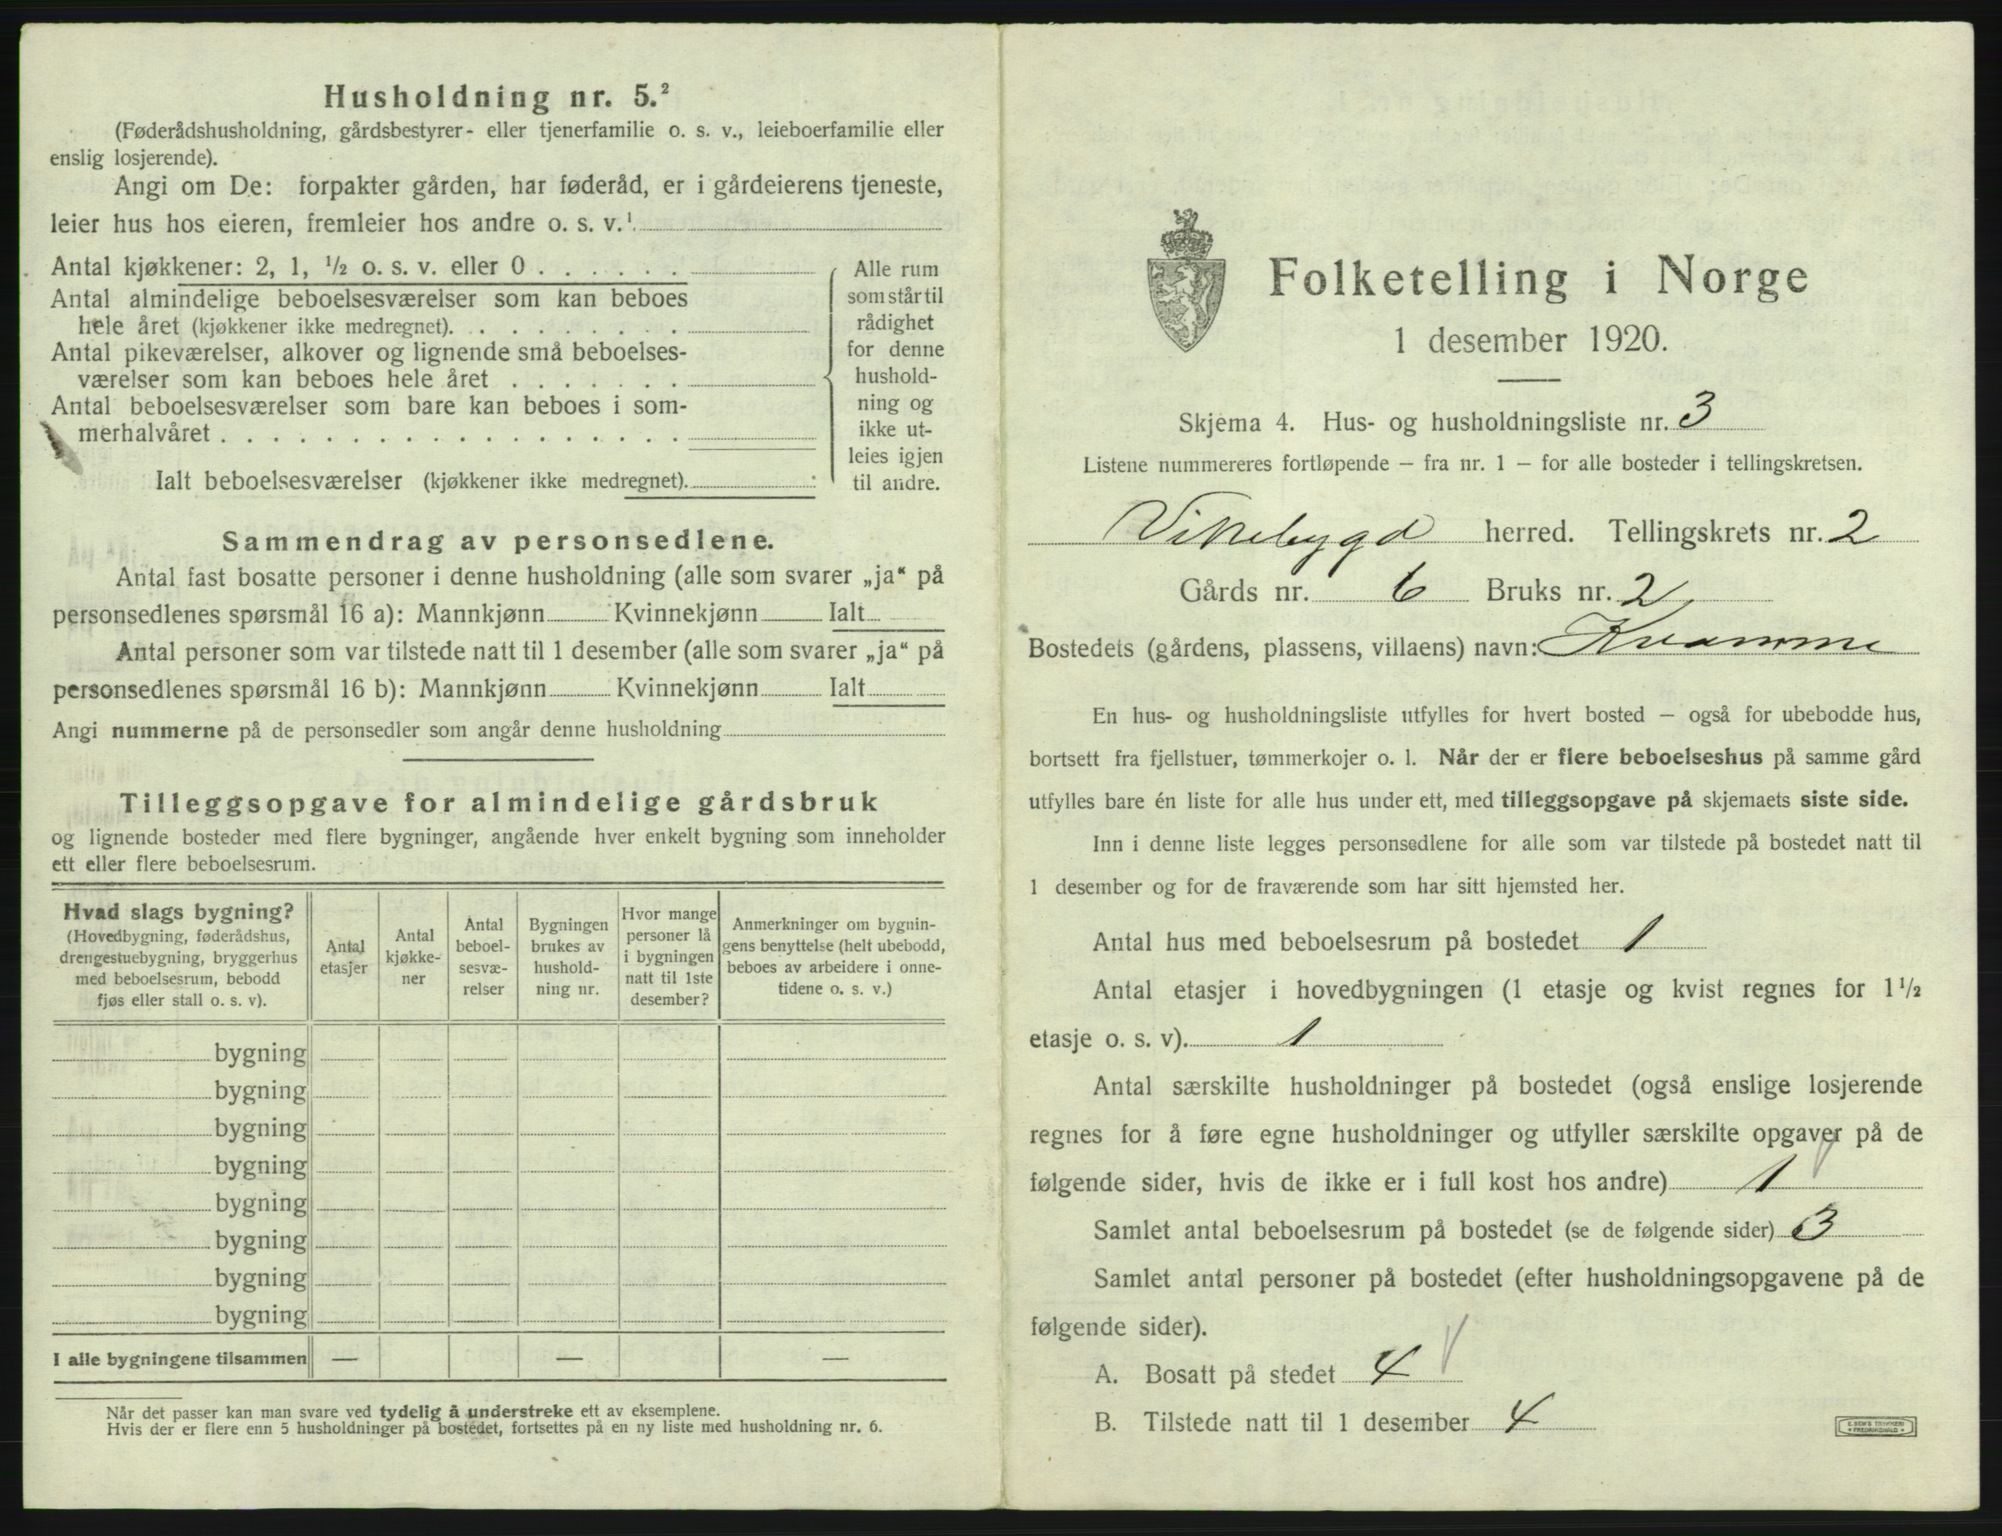 Husholdning nr. 5.²
(Føderådshusholdning, gårdsbestyrer- eller tjenerfamilie o. s. v., leieboerfamilie eller
enslig losjerende).
Angi om De: forpakter gården, har føderåd, er i gårdeierens tjeneste,
leier hus hos eieren, fremleier hos andre o. s. v.¹
Antal kjøkkener: 2, 1, ½ o. s. v. eller 0 . . . . . .
Antal almindelige beboelsesværelser som kan beboes
hele året (kjøkkener ikke medregnet). . . . . . . . .
Antal pikeværelser, alkover og lignende små beboelses-
værelser som kan beboes hele året . . . . . . .
Antal beboelsesværelser som bare kan beboes i som-
merhalvåret . . . . . . . . . . . . . . . . .
Ialt beboelsesværelser (kjøkkener ikke medregnet).
Alle rum
som står til
rådighet
for denne
hushold-
ning og
ikke ut-
leies igjen
til andre.
Sammendrag av personsedlene.
Antal fast bosatte personer i denne husholdning (alle som svarer „ja“ på
personsedlenes spørsmål 16 a): Mannkjønn Kvinnekjønn Ialt
Antal personer som var tilstede natt til 1 desember (alle som svarer „ja“ på
personsedlenes spørsmål 16 b): Mannkjønn Kvinnekjønn Ialt
Angi nummerne på de personsedler som angår denne husholdning
Tilleggsopgave for almindelige gårdsbruk
og lignende bosteder med flere bygninger, angående hver enkelt bygning som inneholder
ett eller flere beboelsesrum.
Hvad slags bygning?
(Hovedbygning, føderådshus,
drengestuebygning, bryggerhus
med beboelsesrum, bebodd
fjøs eller stall o. s. v).
Antal
etasjer
Antal
kjøkke-
ner
Antal
beboel-
sesvæ-
relser
Bygningen
brukes av
hushold-
ning nr.
Hvor mange
personer lå
i bygningen
natt til 1ste
desember?
Anmerkninger om bygnin-
gens benyttelse (helt ubebodd,
beboes av arbeidere i onne-
tidene o. s. v.)
bygning
bygning
bygning
bygning
bygning
bygning
bygning
bygning
I alle bygningene tilsammen — — —
Når det passer kan man svare ved tydelig å understreke ett av eksemplene.
Hvis der er flere enn 5 husholdninger på bostedet, fortsettes på en ny liste med husholdning nr. 6.
Folketelling i Norge
1 desember 1920.
Skjema 4. Hus- og husholdningsliste nr. 3
Listene nummereres fortløpende – fra nr. 1 – for alle bosteder i tellingskretsen.
Vikebygd herred. Tellingskrets nr. 2
Gårds nr. 6 Bruks nr. 2
Bostedets (gårdens, plassens, villaens) navn: Kvamme
En hus- og husholdningsliste utfylles for hvert bosted – også for ubebodde hus,
bortsett fra fjellstuer, tømmerkojer o. l. Når der er flere beboelseshus på samme gård
utfylles bare én liste for alle hus under ett, med tilleggsopgave på skjemaets siste side.
Inn i denne liste legges personsedlene for alle som var tilstede på bostedet natt til
1 desember og for de fraværende som har sitt hjemsted her.
Antal hus med beboelsesrum på bostedet 1
Antal etasjer i hovedbygningen (1 etasje og kvist regnes for 1½
etasje o. s. v). 1
Antal særskilte husholdninger på bostedet (også enslige losjerende
regnes for å føre egne husholdninger og utfyller særskilte opgaver på de
følgende sider, hvis de ikke er i full kost hos andre) 1
Samlet antal beboelsesrum på bostedet (se de følgende sider) 3
Samlet antal personer på bostedet (efter husholdningsopgavene på de
følgende sider).
A. Bosatt på stedet 4
B. Tilstede natt til 1 desember 4
E. SEM'S TRYKKERI
FREDRIKSHALD